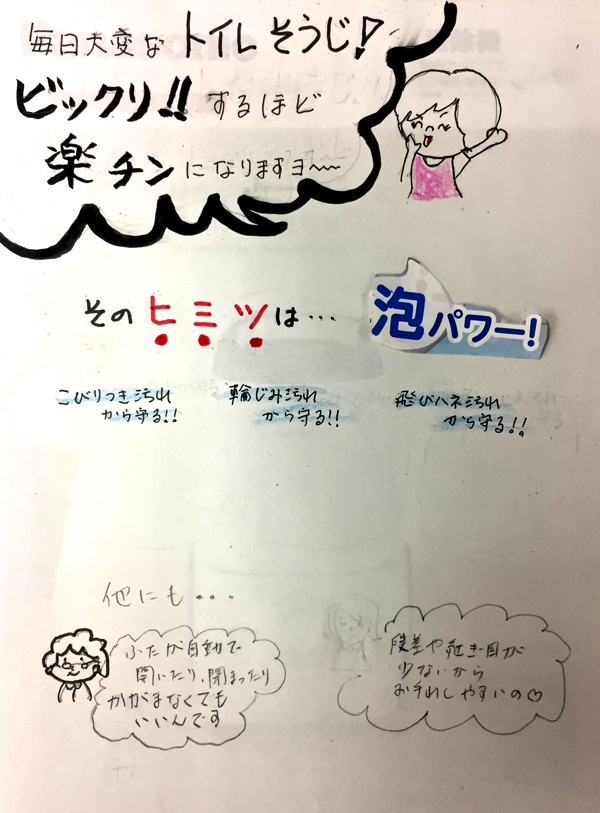 毎日大変なトイレそうじ!
ビックリ!!するほど
楽チンになりますヨ〜〜
そのヒミツは…
泡パワー!
こびりつき汚れ
から守る!!
輪じみ汚れ
から守る!!
飛びハネ汚れ
から守る!!
他にも...
ふたが自動で
開いたり、閉まったり
かがまなくても
いいんです
段差や継ぎ目が
少ないから
お手入しやすいの♡